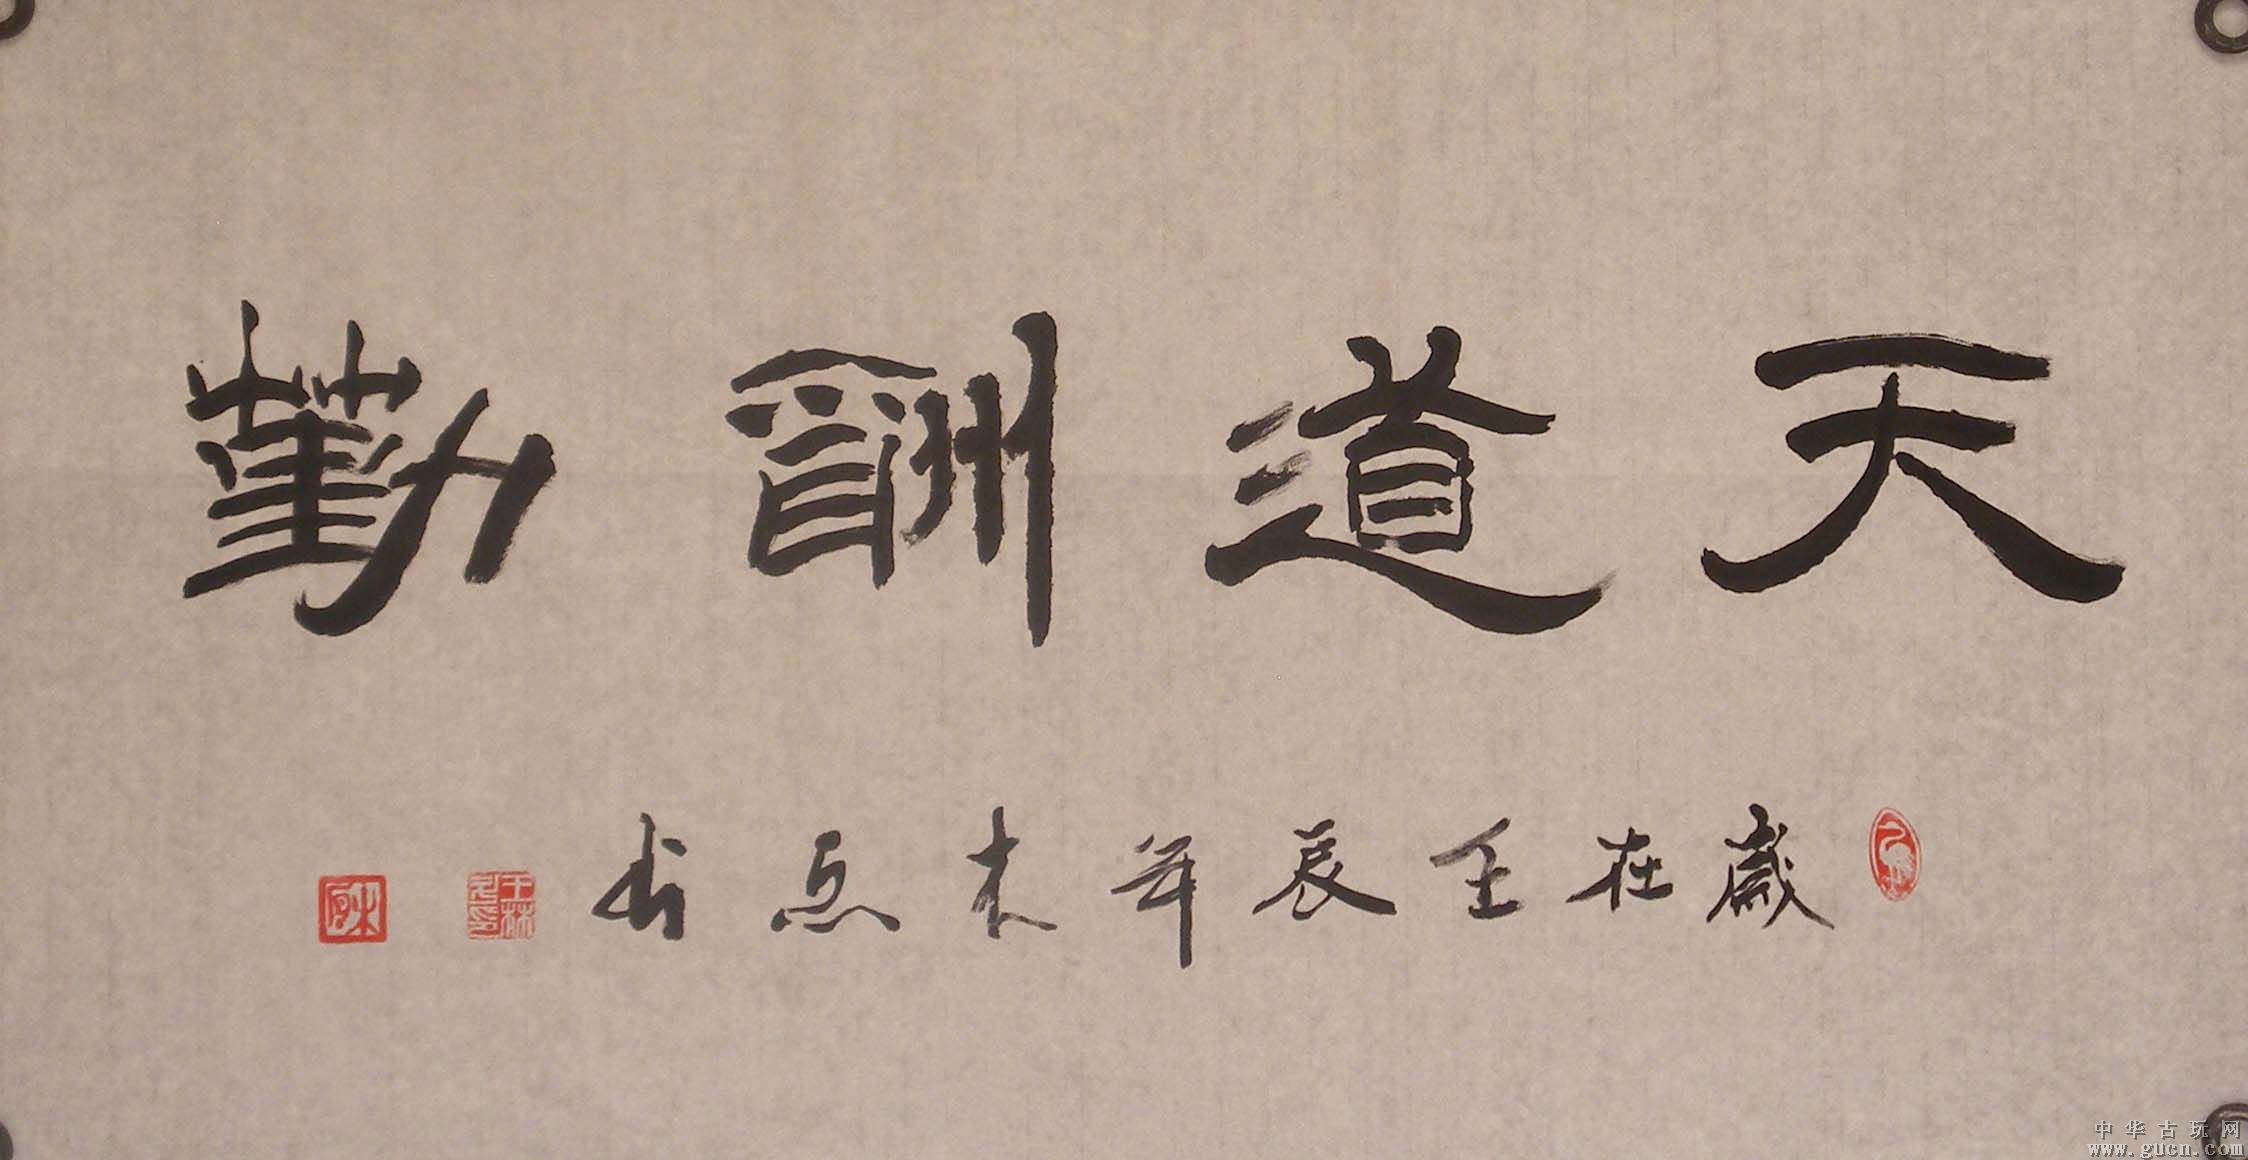 天道酬勤
歲在壬辰年木点书
王林之印
中华古玩网
www.gucn.com